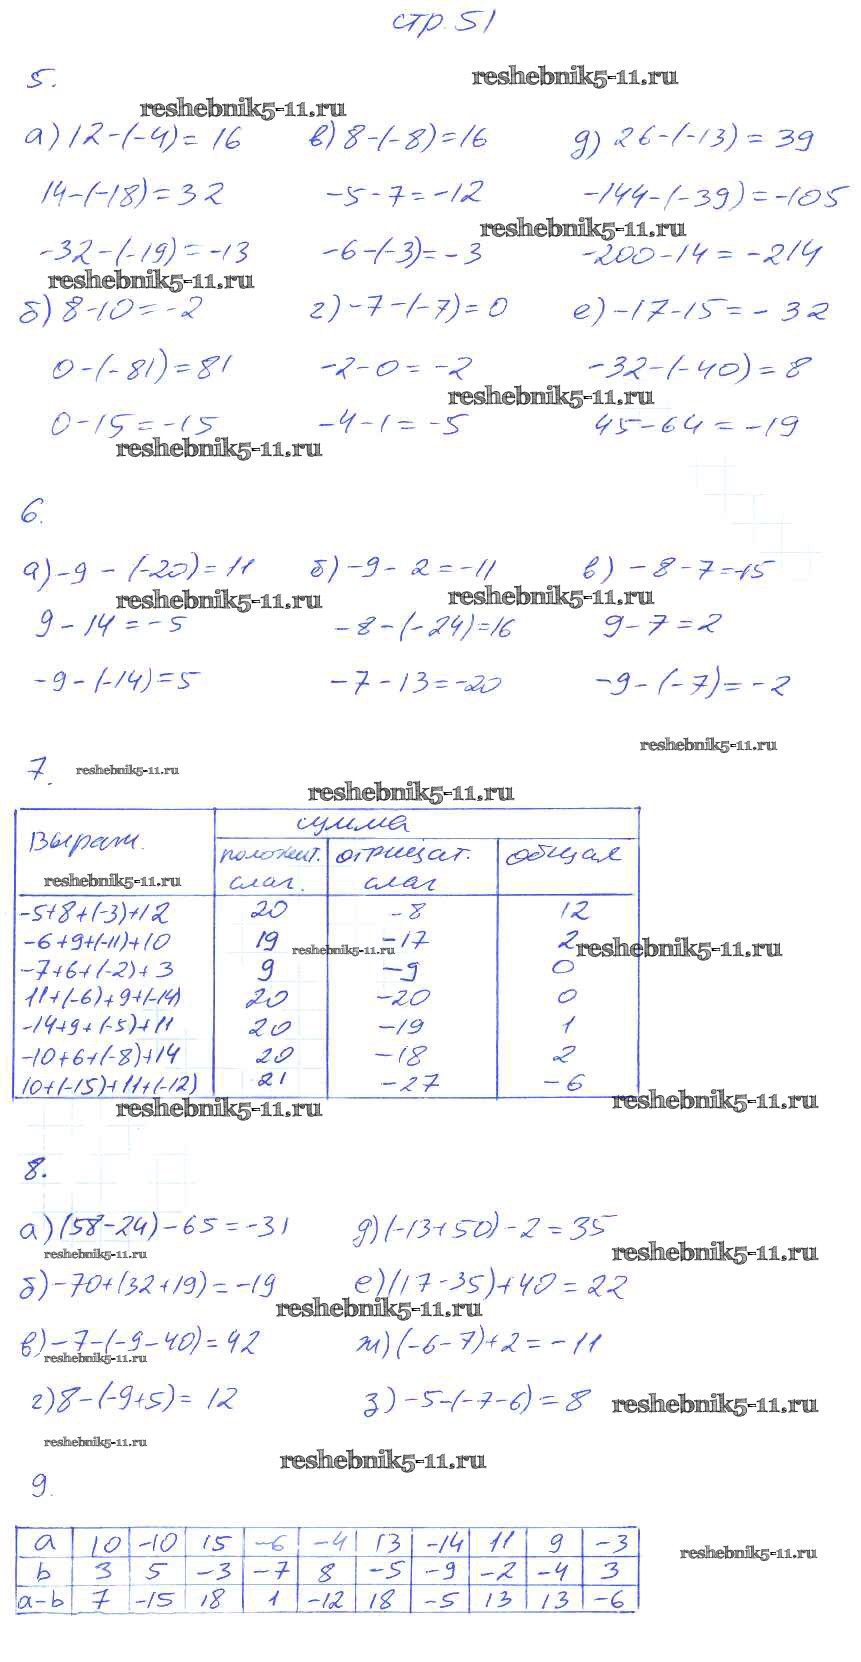 стр. 51
reshebnik5-11.ru
5.
reshebnik5-11.ru
а) 12-(-4)= 16 в) 8-(-8)=16 д) 26-(-13) = 39
14-(-18)=32 -5-7=-12 -144-(-39)=-105
reshebnik5-11.ru
-32-(-19)=-13 -6-(-3)=-3 -200-14=-214
reshebnik5-11.ru
б) 8-10=-2 г) -7-(-7)=0 е) -17-15=-32
0-(-81)=81 -2-0=-2 -32-(-40)=8
reshebnik5-11.ru
0-15=-15 -4-1=-5 45-64=-19
reshebnik5-11.ru
6.
а) -9-(-20)=11 б) -9-2=-11 в) -8-7=-15
reshebnik5-11.ru reshebnik5-11.ru
9-14=-5 -8-(-24)=16 9-7=2
-9-(-14)=5 -7-13=-20 -9-(-7)=-2
reshebnik5-11.ru
7. reshebnik5-11.ru
reshebnik5-11.ru
Выраж. сумма
положит. слаг. отрицат. слаг общая
reshebnik5-11.ru
-5+8+(-3)+12 20 -8 12
-6+9+(-11)+10 19 -17 2
reshebnik5-11.ru reshebnik5-11.ru
-7+6+(-2)+3 9 -9 0
11+(-6)+9+(-14) 20 -20 0
-14+9+(-5)+11 20 -19 1
-10+6+(-8)+14 20 -18 2
10+(-15)+11+(-12) 21 -27 -6
reshebnik5-11.ru reshebnik5-11.ru
8.
а) (58-24)-65=-31 д) (-13+50)-2=35
reshebnik5-11.ru reshebnik5-11.ru
б) -70+(32+19)=-19 е) (17-35)+40=22
reshebnik5-11.ru
в) -7-(-9-40)=42 ж) (-6-7)+2=-11
reshebnik5-11.ru
г) 8-(-9+5)= 12 з) -5-(-7-6)=8
reshebnik5-11.ru
reshebnik5-11.ru
reshebnik5-11.ru
9.
a 10 -10 15 -6 -4 13 -14 11 9 -3
b 3 5 -3 -7 8 -5 -9 -2 -4 3
reshebnik5-11.ru
a-b 7 -15 18 1 -12 18 -5 13 13 -6